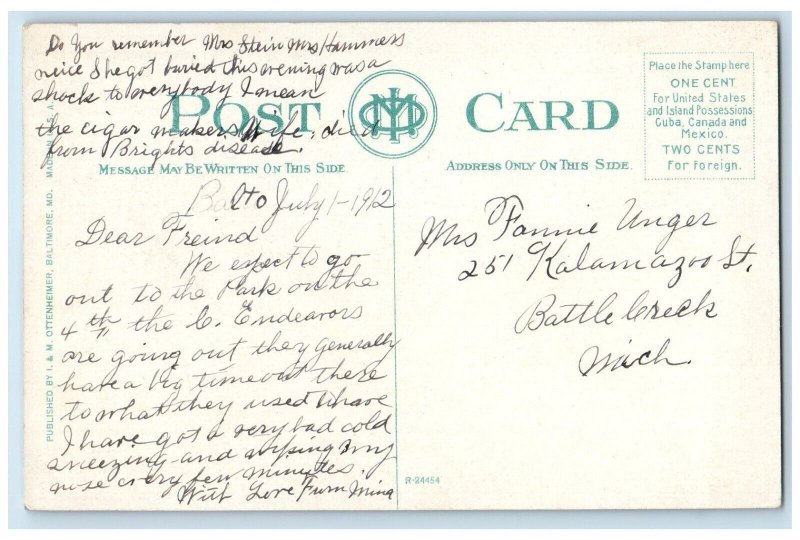 Do You remember Mrs Stein Mrs Hammers
neice She got buried this evening was a
shock to everybody I mean
the cigar makers Wife, died
from Brights disease.
POST CARD
MESSAGE MAY BE WRITTEN ON THIS SIDE.
ADDRESS ONLY ON THIS SIDE.
Place the Stamp here
ONE CENT
For United States
and Island Possessions
Cuba, Canada and
Mexico.
TWO CENTS
For Foreign.
PUBLISHED BY I. & M. OTTENHEIMER, BALTIMORE, MD. MADE IN U.S.A.
Balto July 1-1912
Dear Freind
We expect to go
out to the Park on the
4th " the C. Endeavors
are going out they generally
have a big time out there
to what they used to have
I have got a very bad cold
sneezing and wiping my
nose every few minutes.
With Love From Mina
Mrs Fannie Unger
251 Kalamazoo St,
Battle Creek
Mich.
R-24454